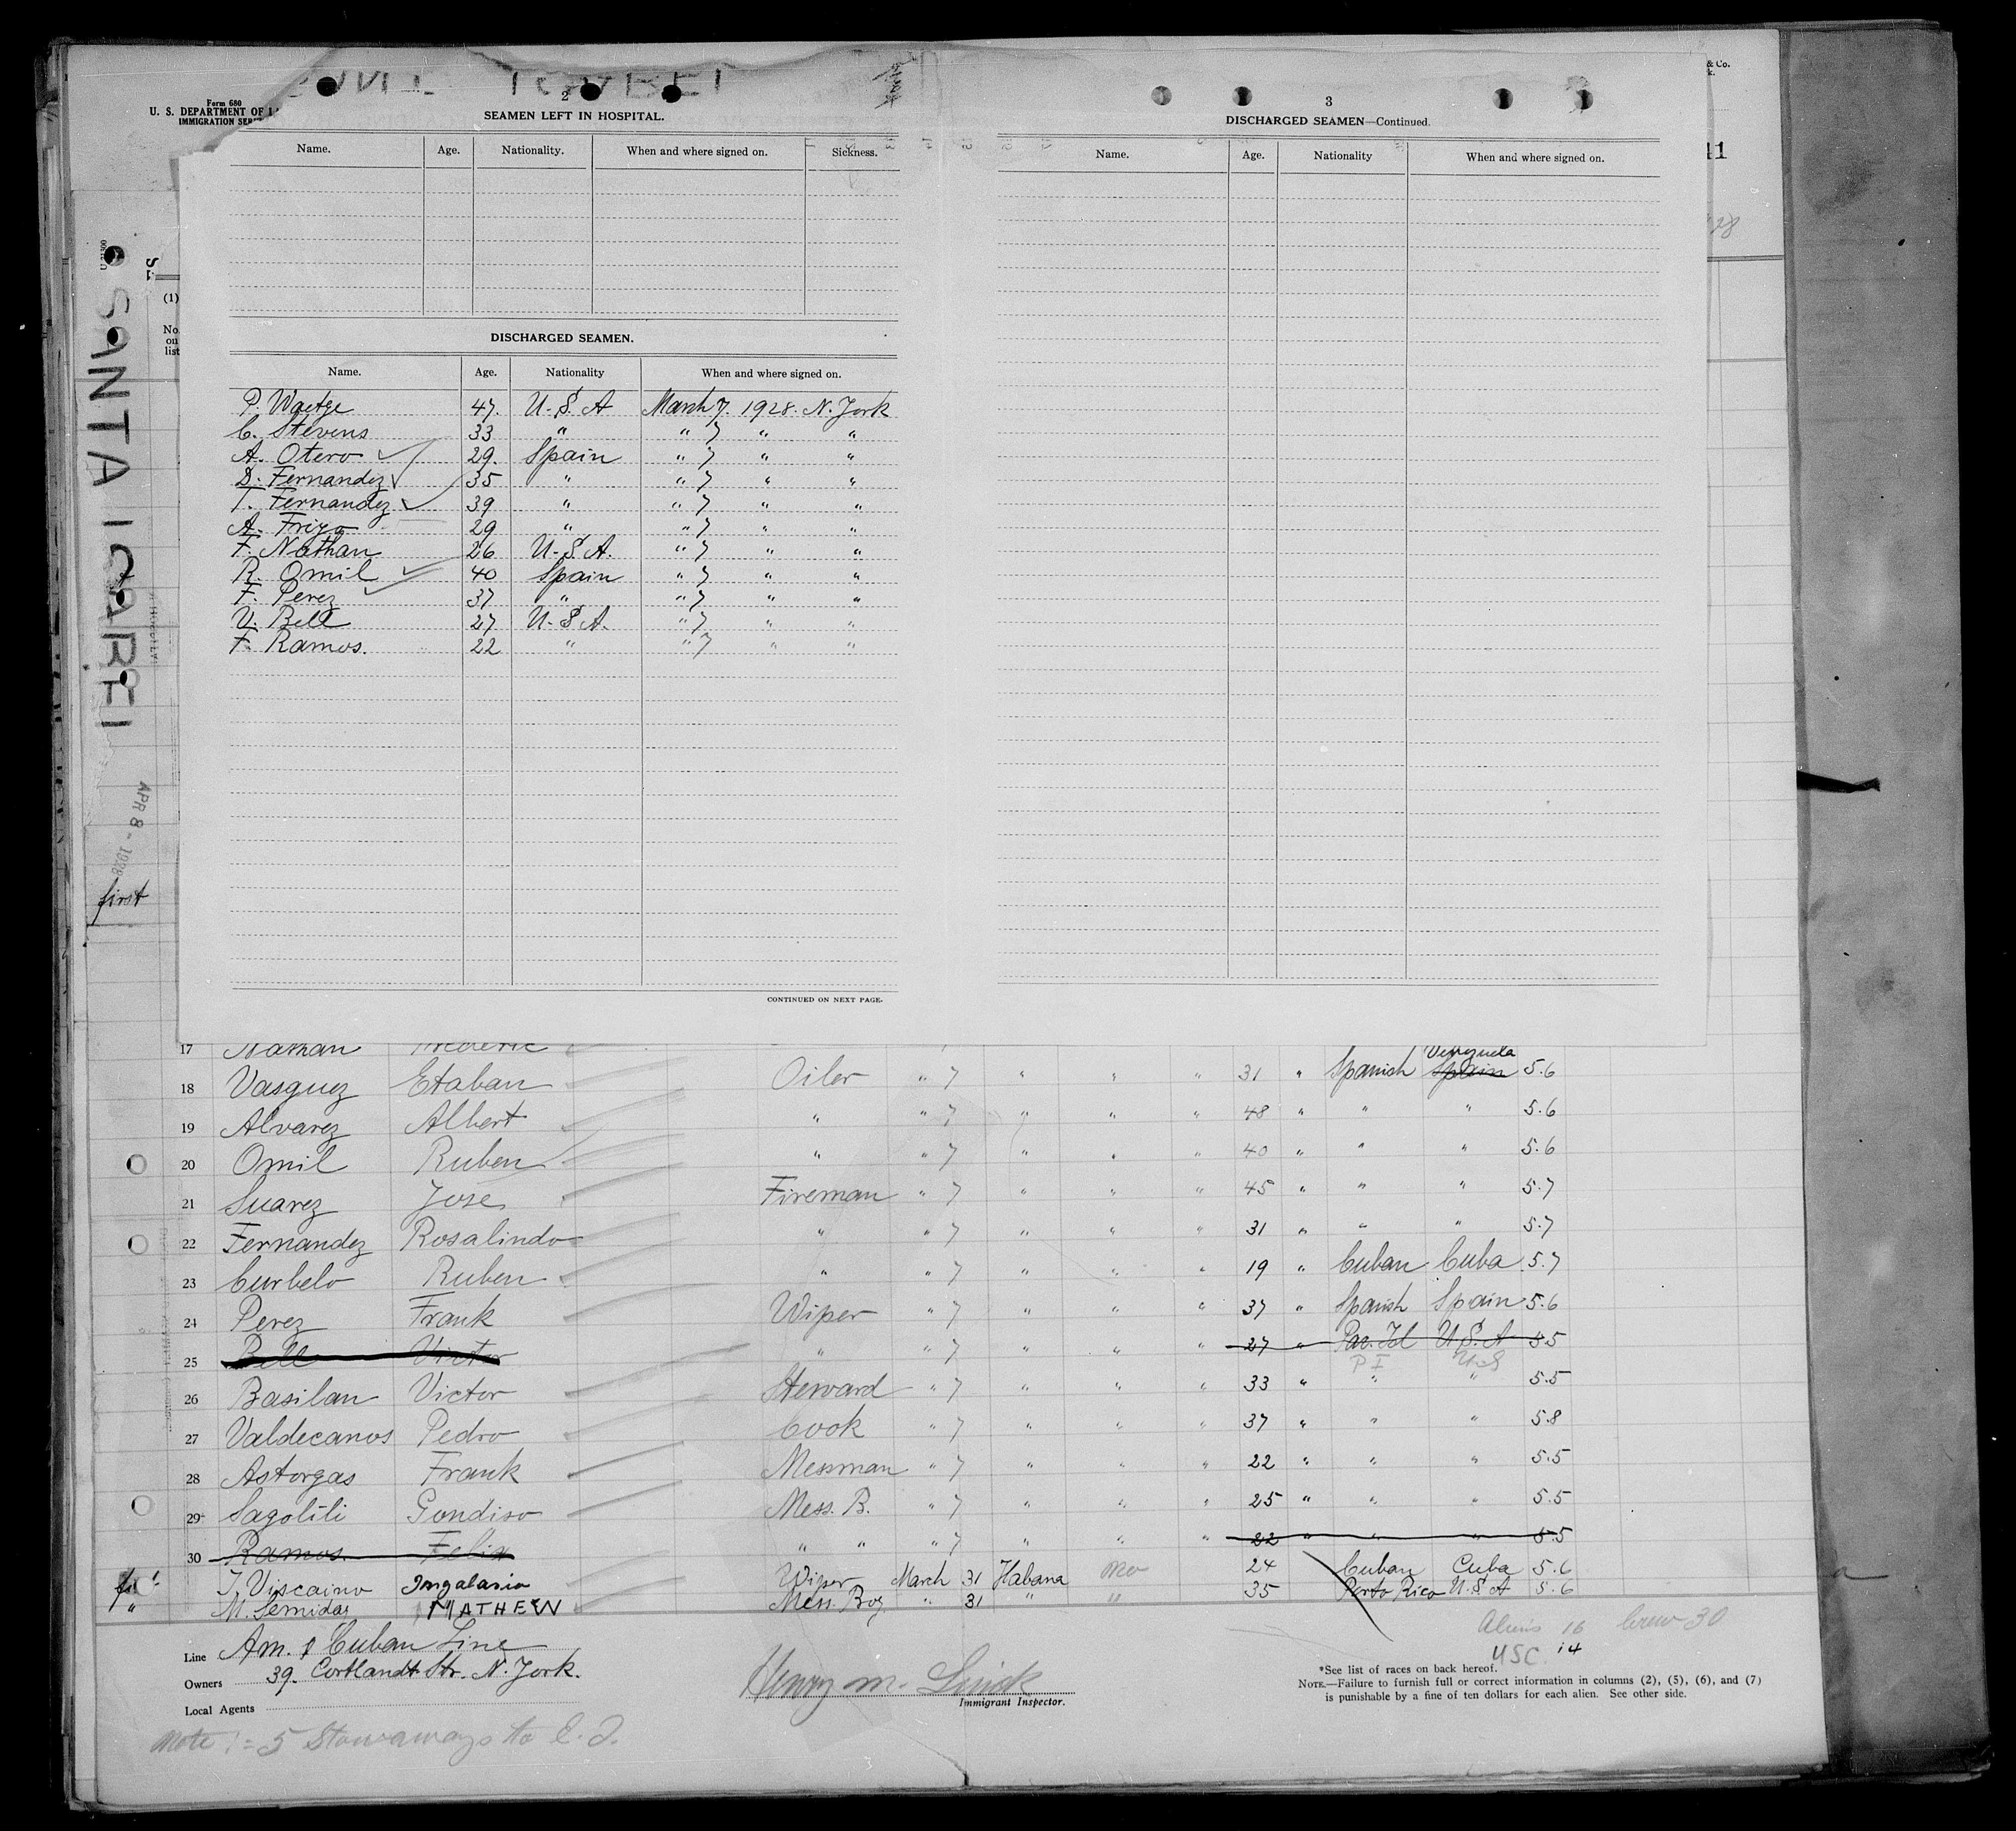 Form 680
U. S. DEPARTMENT OF
IMMIGRATION
2
SEAMEN LEFT IN HOSPITAL.
Name. Age. Nationality. When and where signed on. Sickness.
DISCHARGED SEAMEN.
Name. Age. Nationality When and where signed on.
P. Waetge 47. U.S.A March 7. 1928. N. York
C. Stevens 33 " " 7 " "
A. Otero 29. Spain " 7 " "
D. Fernandez 35 " " 7 " "
T. Fernandez 39 " " 7 " "
A. Frigo 29 " " 7 " "
F. Nathan 26 U.S.A. " 7 " "
R. Omil 40 Spain " 7 " "
F. Perez 37 " " 7 " "
V. Bell 27 U.S.A. " 7 " "
F. Ramos. 22 " " 7 " "
CONTINUED ON NEXT PAGE.
3
DISCHARGED SEAMEN—Continued.
Name. Age. Nationality When and where signed on.
& Co.
11
28
(1)
No.
on
list
SANTA ISABEL
APR 8 - 1928
first
17 Nathan Frederic
18 Vasquez Etaban Oiler " 7 " " " 31 " Spanish Venezuela Spain 5.6
19 Alvarez Albert " " 7 " " " 48 " " " 5.6
20 Omil Ruben " " 7 " " " 40 " " " 5.6
21 Suarez Jose Fireman " 7 " " " 45 " " " 5.7
22 Fernandez Rosalindo " " 7 " " " 31 " " " 5.7
23 Curbelo Ruben " " 7 " " " 19 " Cuban Cuba 5.7
24 Perez Frank Wiper " 7 " " " 37 " Spanish Spain 5.6
25 Bell Victor " " 7 " " " 27 " Pac. Isl U.S.A 5.5
P I U.S
26 Basilan Victor Steward " 7 " " " 33 " " " 5.5
27 Valdecanos Pedro Cook " 7 " " " 37 " " " 5.8
28 Astorgas Frank Messman " 7 " " " 22 " " " 5.5
29 Sagolili Gondiso Mess. B. " 7 " " " 25 " " " 5.5
30 Ramos. Felix " " " 7 " " " 22 " " " 5.5
J. Viscaino Ingalasio Wiper March 31 Habana 24 Cuban Cuba 5.6
" M. Semiday MATHEW Mess. Boy " 31 " " 35 Porto Rico U.S.A 5.6
Aliens 16 Crew 30
USC. 14
Line Am. & Cuban Line
Owners 39. Cortlandt Str. N. York.
Local Agents
Henry M.
Immigrant Inspector.
*See list of races on back hereof.
NOTE.—Failure to furnish full or correct information in columns (2), (5), (6), and (7)
is punishable by a fine of ten dollars for each alien. See other side.
Note:= 5 Stowaways to E. I.